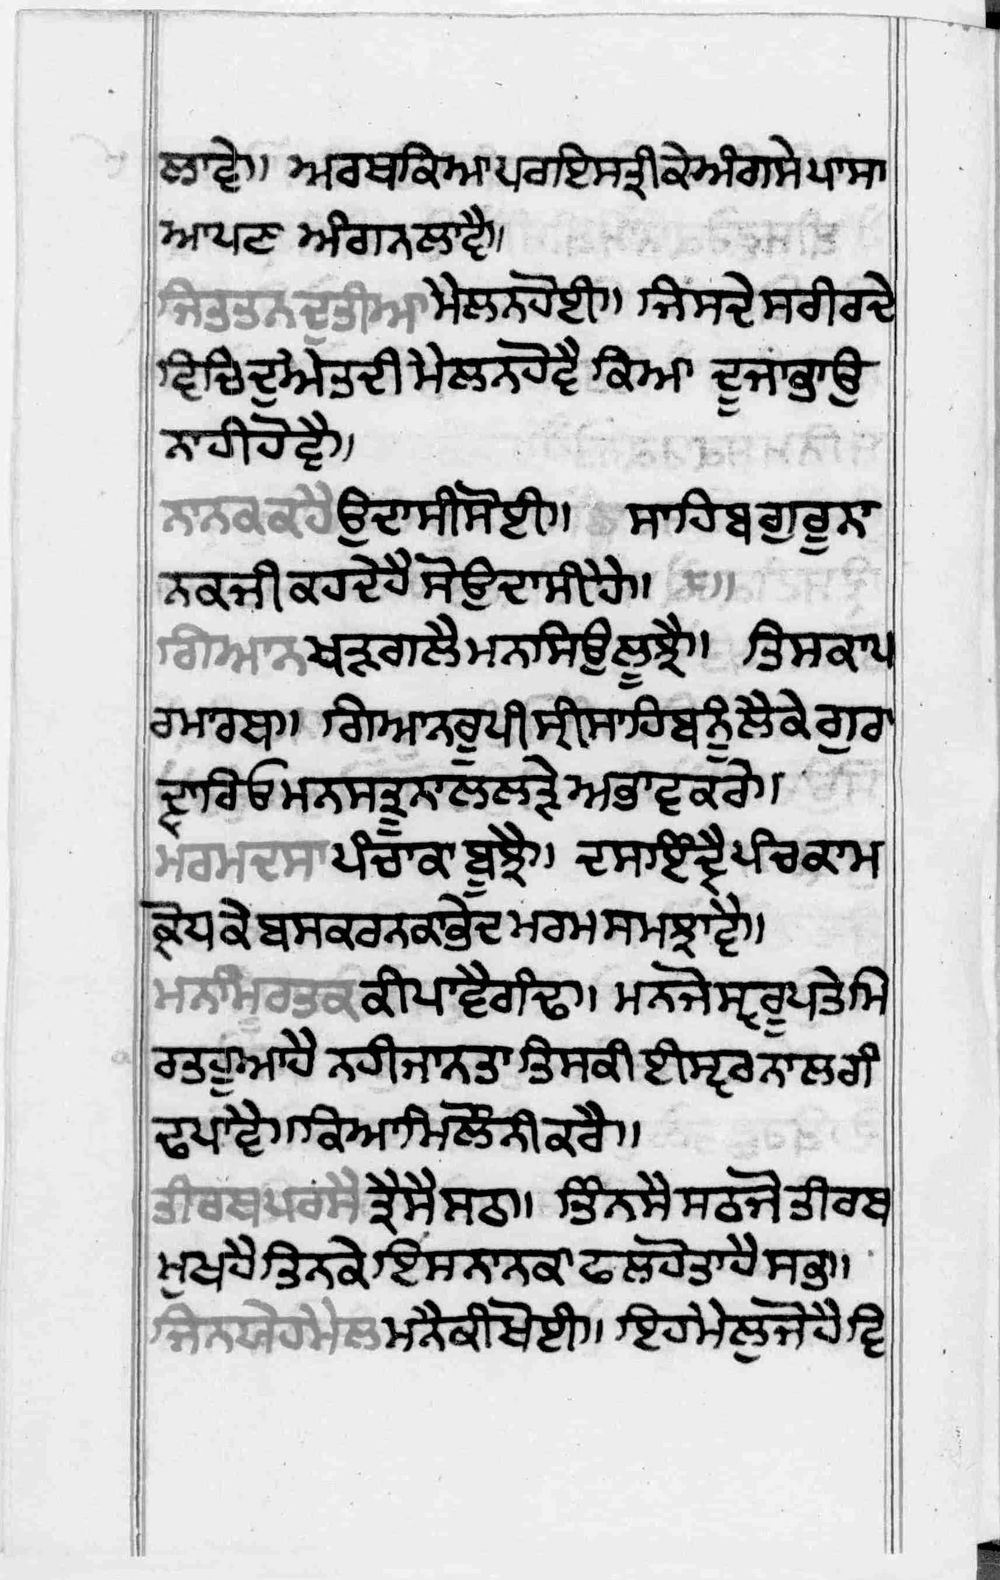 ਲਾਵੇ॥ ਅਰਥਕਿਆਪਰਾਇਸਤ੍ਰੀਕੇਅੰਗਸੇਪਾਸਾ
ਆਪਣ ਅੰਗਨਲਾਵੈ॥
ਜਿਤਤਨਦੁਤੀਆਮੈਲਨਹੋਈ॥ ਜਿਸਦੇਸਰੀਰਦੇ
ਵਿਚਿਦੁਐਤਦੀਮੈਲਨਹੋਵੈਕਿਆ ਦੂਜਾਭਾਉ
ਨਾਹੀਹੋਵੈ॥
ਨਾਨਕਕਹੈਉਦਾਸੀਸੋਈ॥ ਸਾਹਿਬਗੁਰੂਨਾ
ਨਕਜੀਕਹਦੇਹੈਸੋਉਦਾਸੀਹੈ॥
ਗਿਆਨਖੜਗਲੈਮਨਸਿਉਲੂਝੈ॥ ਤਿਸਕਾਪ
ਰਮਾਰਥ॥ ਗਿਆਨਰੂਪੀਸ੍ਰੀਸਾਹਿਬਨੂੰਲੈਕੇਗੁਰ
ਦ੍ਵਾਰਿਓਮਨਸਤ੍ਰੂਨਾਲਲੜੇਅਭਾਵਕਰੇ॥
ਮਰਮਦਸਾਪੰਚਾਕਾਬੂਝੈ॥ ਦਸਇੰਦ੍ਰੈਪੰਚਕਾਮ
ਕ੍ਰੋਧਕੇਬਸਕਰਨਕਾਭੇਦਮਰਮਸਮਝਾਵੈ॥
ਮਨਮਿਰਤਕਕੀਪਾਵੈਗੰਢਾ॥ ਮਨਜੋਸ੍ਵਰੂਪਤੇਮਿ
ਰਤਹੂਆਹੈਨਹੀਜਾਨਤਾਤਿਸਕੀਈਸ੍ਵਰਨਾਲਗੰ
ਢਪਾਵੈ॥ਕਿਆਮਿਲੌਨੀਕਰੈ॥
ਤੀਰਥਪਰਸੈਤ੍ਰੈਸੈਸਠਾ॥ ਤਿੰਨਸੈਸਠਜੋਤੀਰਥ
ਮੁਖਹੈਤਿਨਕੇਇਸਨਾਨਕਾਫਲਹੋਤਾਹੈਸਭ॥
ਜਿਨਯੇਹਮੈਲਮਨੈਕੀਖੋਈ॥ ਇਹਮੇਲੁਜੋਹੈਵਿ